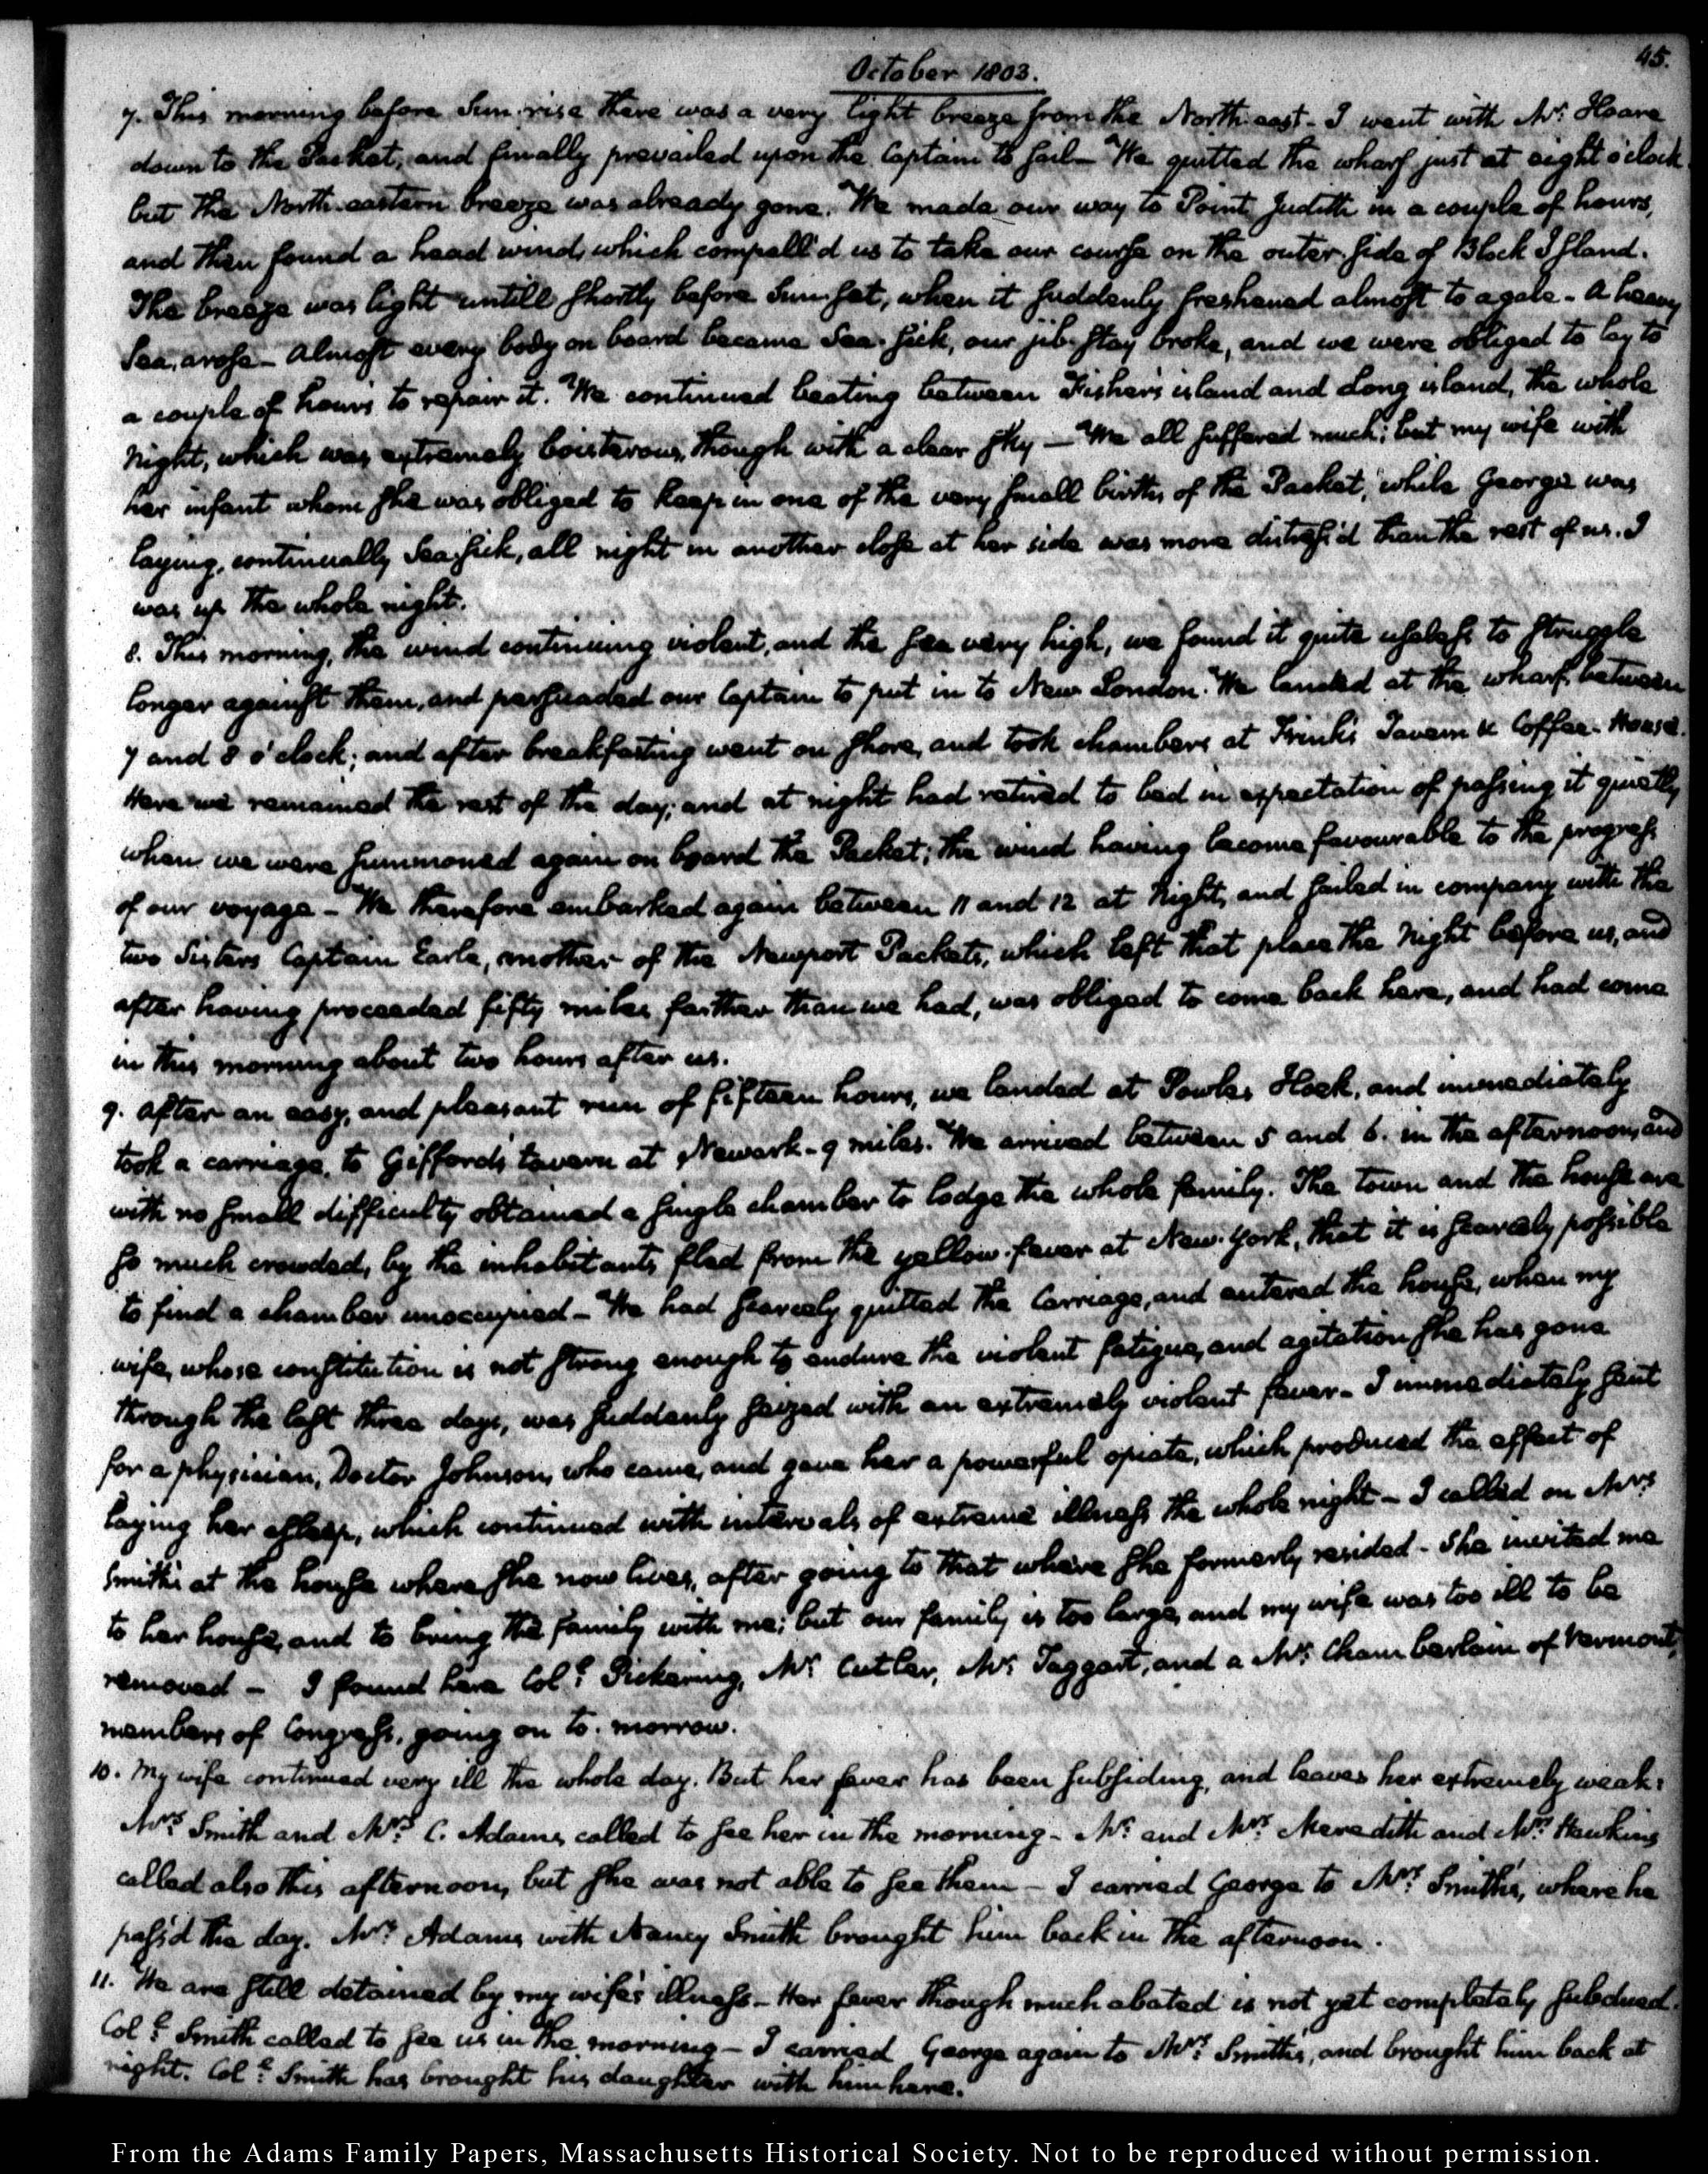 45.
October 1803.
7. This morning before Sun-rise there was a very light breeze from the North-east- I went with Mr. Hoare
down to the Packet, and finally prevailed upon the Captain to sail- We quitted the wharf just at eight o'clock
but the North-eastern breeze was already gone. We made our way to Point Judith in a couple of hours,
and then found a head wind, which compell'd us to take our course on the outer side of Block Island.
The breeze was light untill shortly before Sun-set, when it suddenly freshened almost to a gale- A heavy
Sea, arose- Almost every body on board became Sea-sick, our jib-stay broke, and we were obliged to lay to
a couple of hours to repair it. We continued beating between Fisher's island and Long island, the whole
Night, which was extremely boisterous, though with a clear sky— We all suffered much; but my wife with
her infant whom she was obliged to keep in one of the very small births of the Packet, while George was
laying, continually Sea-sick, all night in another close at her side was more distress'd than the rest of us. I
was up the whole night.
8. This morning, the wind continuing violent, and the sea very high, we found it quite useless to struggle
longer against them, and persuaded our Captain to put in to New London. We landed at the wharf, between
7 and 8 o'clock; and after breakfasting went on shore, and took chambers at Frink's Tavern & Coffee-House.
Here we remained the rest of the day; and at night had retired to bed in expectation of passing it quietly
when we were summoned again on board the Packet; the wind having become favourable to the progress
of our voyage- We therefore embarked again between 11 and 12 at Night, and sailed in company with the
two Sisters Captain Earle, another of the Newport Packets, which left that place the Night before us, and
after having proceeded fifty miles farther than we had, was obliged to come back here, and had come
in this morning about two hours after us.
9. After an easy, and pleasant run of fifteen hours, we landed at Powles Hook, and immediately
took a carriage, to Gifford's tavern at Newark- 9 miles. We arrived between 5 and 6. in the afternoon, and
with no small difficulty obtained a single chamber to lodge the whole family. The town and the house are
so much crowded, by the inhabitants fled from the yellow-fever at New-York, that it is scarcely possible
to find a chamber unoccupied- We had scarcely quitted the Carriage, and entered the house, when my
wife, whose constitution is not strong enough to endure the violent fatigue, and agitation she has gone
through the last three days, was suddenly seized with an extremely violent fever- I immediately sent
for a physician, Doctor Johnson, who came, and gave her a powerful opiate, which produced the effect of
laying her asleep, which continued with intervals of extreme illness the whole night- I called on Mrs
Smith at the house where she now lives, after going to that where she formerly resided- She invited me
to her house, and to bring the family with me; but our family is too large, and my wife was too ill to be
removed- I found here Coll. Pickering, Mr. Cutler, Mr. Taggart, and a Mr. Chamberlain of Vermont,
members of Congress, going on to-morrow.
10. My wife continued very ill the whole day. But her fever has been subsiding, and leaves her extremely weak:
Mrs. Smith and Mrs. C. Adams, called to see her in the morning- Mr. and Mrs. Meredith and Mrs. Hawkins
called also this afternoon, but she was not able to see them- I carried George to Mrs. Smith's, where he
pass'd the day. Mrs. Adams with Nancy Smith brought him back in the afternoon.
11. We are still detained by my wife's illness- Her fever though much abated is not yet completely subdued.
Coll. Smith called to see us in the morning- I carried George again to Mrs. Smith's, and brought him back at
night. Coll. Smith has brought his daughter with him here.
From the Adams Family Papers, Massachusetts Historical Society. Not to be reproduced without permission.